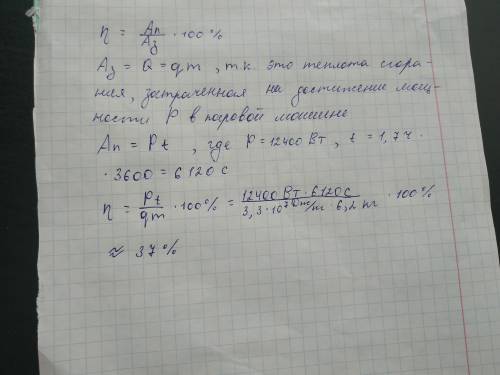 η = Aп/Aз · 100%
Aз = Q = qm, т.к. это теплота сгора-
ния, затраченная на достижение мощ-
ности P в паровой машине
Aп = Pt, где P = 12400 Вт, t = 1,7 ч ·
· 3600 = 6120 с
η = Pt/qm · 100% = 12400 Вт · 6120 с / 3,3 · 10⁷ Дж/кг · 6,2 кг · 100%
≈ 37%